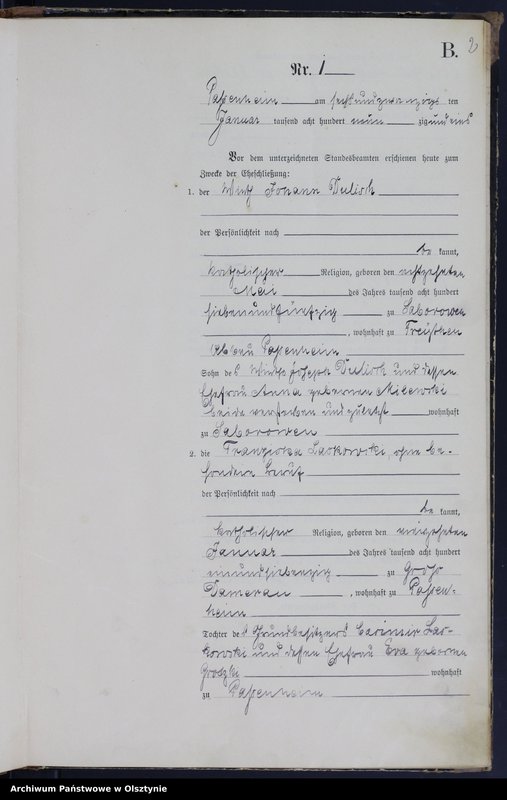 B. 2
Nr. 1
Passenheim am sechsundzwanzigs ten
Januar tausend acht hundert neun zig und eins
Vor dem unterzeichneten Standesbeamten erschienen heute zum
Zwecke der Eheschließung:
1. der Wirth Johann
der Persönlichkeit nach
be kannt,
katholischer Religion, geboren den achtzehnten
Mai des Jahres tausend acht hundert
siebenundfünfzig zu Saborowen
, wohnhaft zu
Abbau Passenheim
Sohn des Wirths Joseph und dessen
Ehefrau Anna geborenen Milewski
beide verstorben und zuletzt wohnhaft
zu Saborowen
2. die Franziska Laskowski, ohne be-
sondern Beruf
der Persönlichkeit nach
be kannt,
katholischer Religion, geboren den
Januar des Jahres tausend acht hundert
einundsiebenzig zu Groß
Damerau , wohnhaft zu Passen-
heim
Tochter des Grundbesitzers Casimir Las-
kowski und dessen Ehefrau Eva geborenen
Grodzki wohnhaft
zu Passenheim
Archiwum Państwowe w Olsztynie